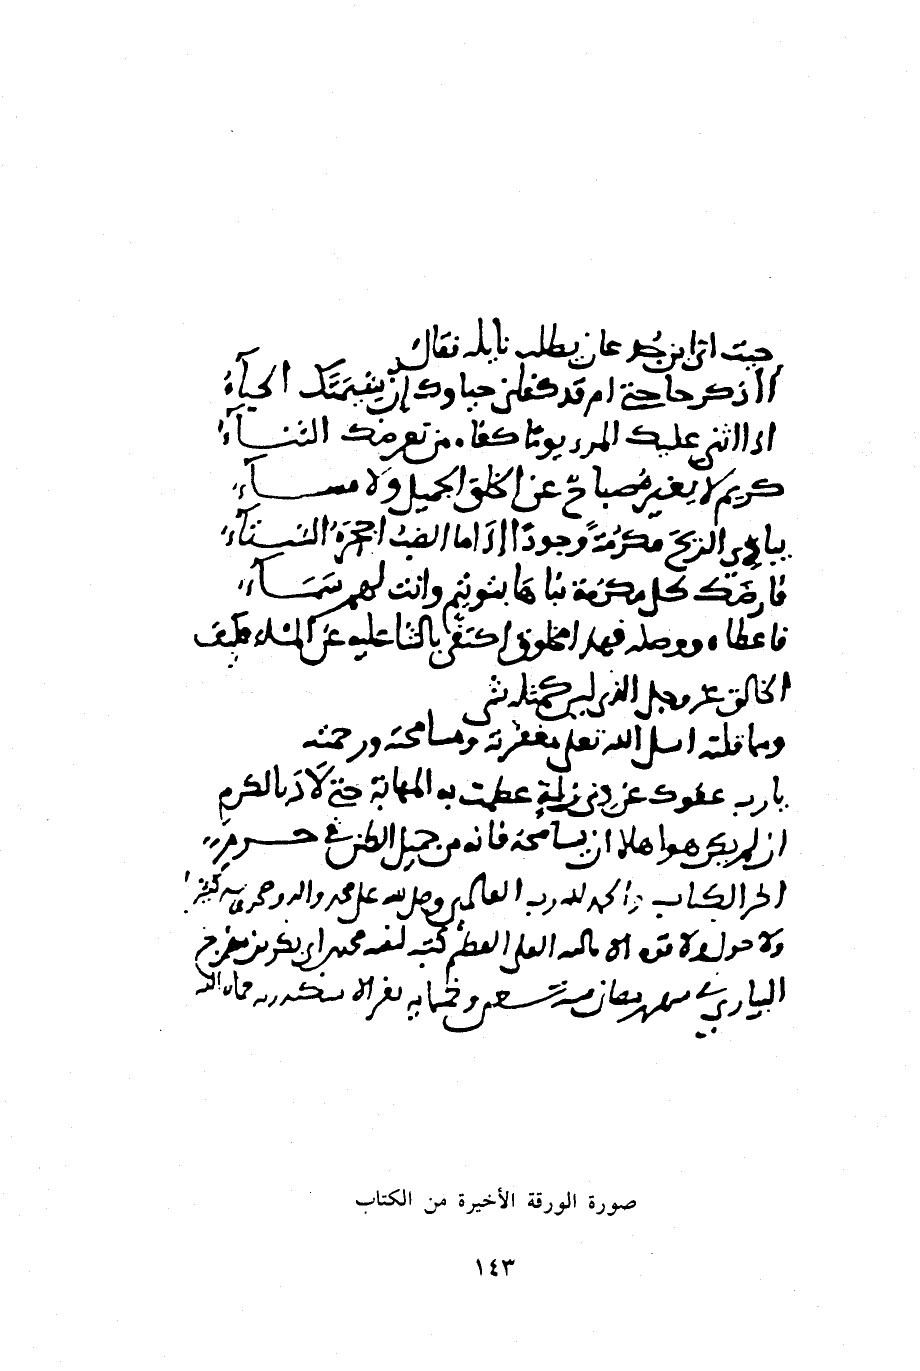 حيث اتى ابن جدعان يطلب نايله فقال
أأذكر حاجتي ام قد كفاني حياوك إن شيمتك الحياءُ
اذا اثنى عليك المرء يوماً كفاه من تعرضك الثناءُ
كريم لا يغيره صباحٌ عن الخلق الجميل ولا مساءُ
يباري الريح مكرمةً وجوداً إذا ما الضب اجحره الشتاءُ
فارضك كل مكرمة بناها بنو تيم وانت لهم سماءُ
فاعطاه ووصله فهذا مخلوق اكتفى بالثنا عليه عن المسله فكيف
الخالق عز وجل الذي ليس كمثله شي
ومما قلته اسل الله تعلى مغفرته ومسامحته ورحمته
يارب عفوك عن ذي زلة عظمت به المهابة حتى لاذ بالكرم
ان لم يكن هو اهلا ان تسامحه فانه من جميل الظن في حرم
اخر الكتاب والحمد لله رب العالمين وصلى الله على محمد واله وصحبه
ولا حول ولا قوة الا بالله العلي العظيم كتبه لنفسه محمد بن ابي بكر بن مفرج
البياري في شهر رمضان سنة تسعين وخمسمايه بثغر الاسكندريه حماه الله
صورة الورقة الأخيرة من الكتاب
١٤٣